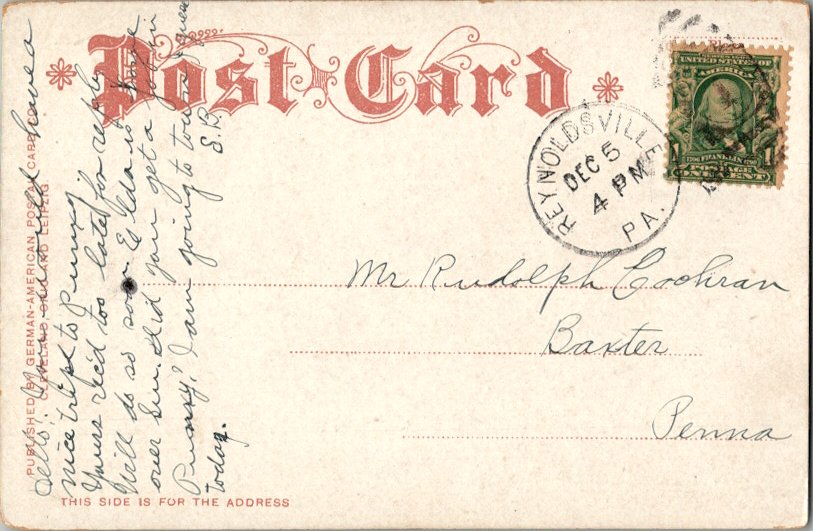 Post Card
UNITED STATES OF
AMERICA
1 FRANKLIN 1
POSTAGE
ONE CENT
REYNOLDSVILLE
DEC 5
4 PM
PA.
Mr Rudolph Cochran
Baxter
Penna
Hello! You will have a
nice trip to Punxy
Yours rec'd too late for reply
Will do so soon. E lda is home
over Sun. Did you get a from
Punxy? I am going to town
today. S.R.
PUBLISHED BY GERMAN-AMERICAN POSTAL CARD CO.
CLEVELAND, OHIO AND LEIPZIG
THIS SIDE IS FOR THE ADDRESS